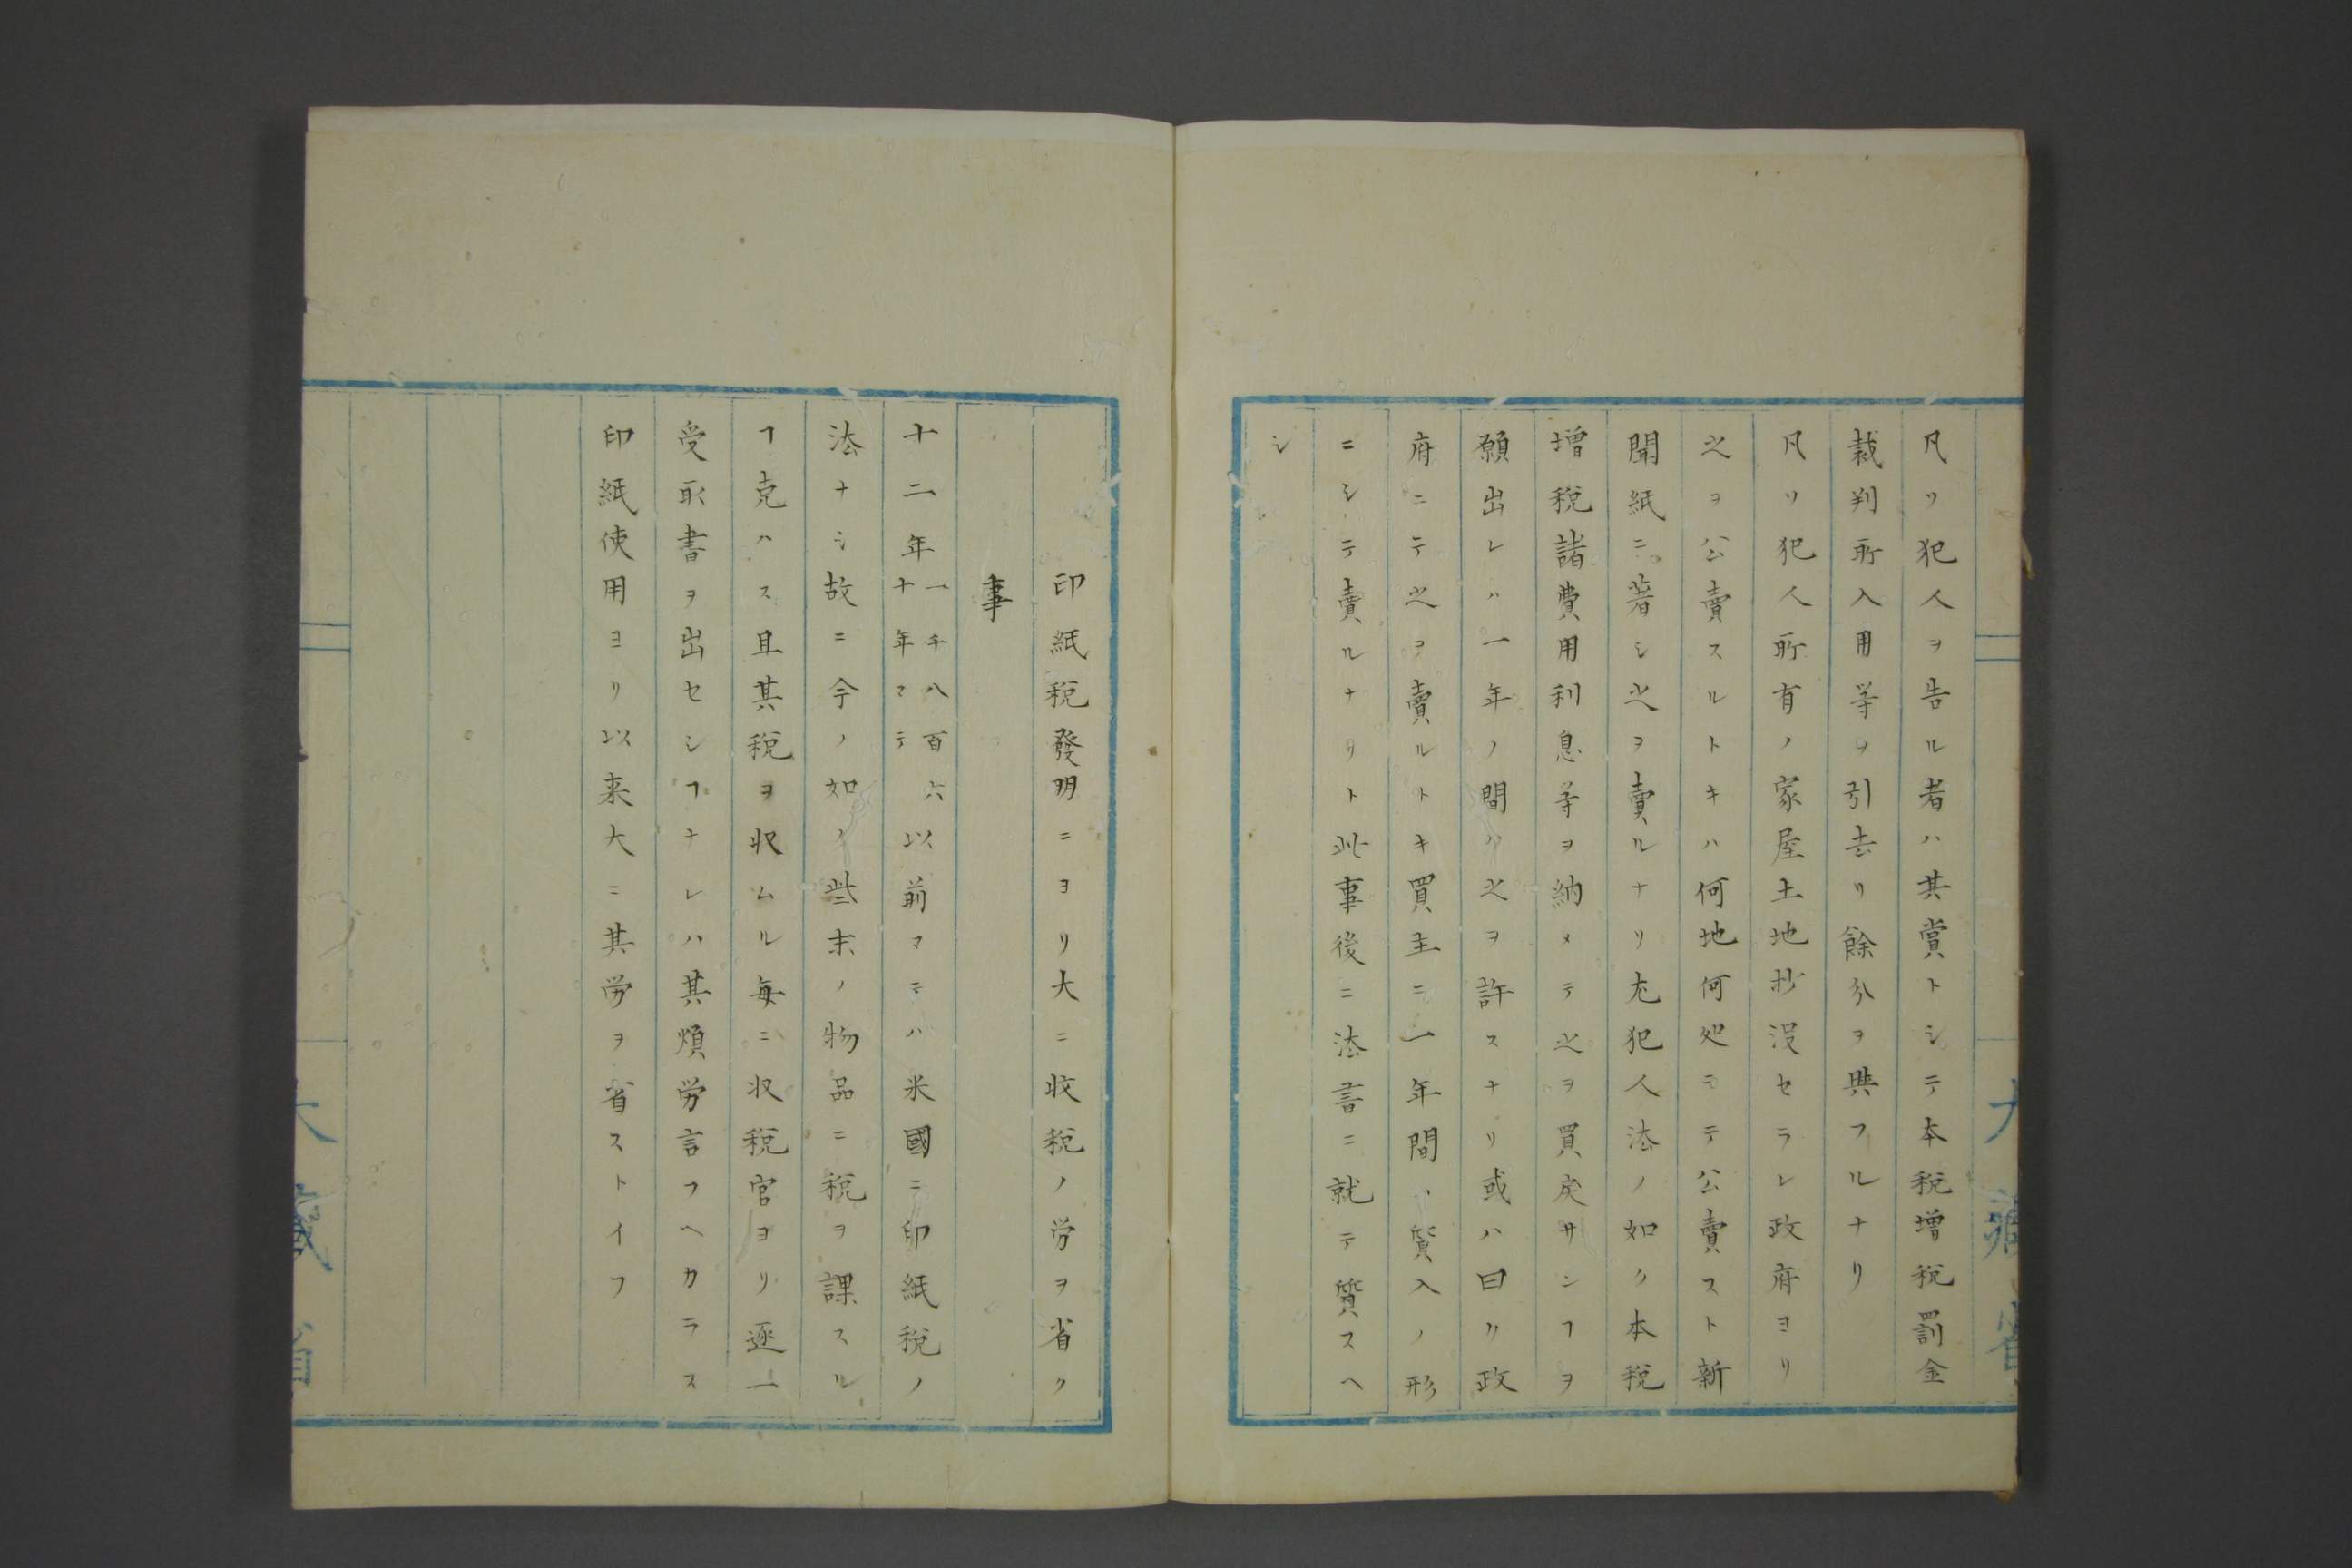 凡ソ犯人ヲ告ル者ハ其賞トシテ本税増税罰金
裁判所入用等ヲ引去リ餘分ヲ與フルナリ
凡ソ犯人所有ノ家屋土地抄没セラレ政府ヨリ
之ヲ公賣スルトキハ何地何処ニテ公賣スト新
聞紙ニ著シ之ヲ賣ルナリ尤犯人法ノ如ク本税
増税諸費用利息等ヲ納メテ之ヲ買戻サンヿヲ
願出レハ一年ノ間ハ之ヲ許スナリ或ハ曰リ政
府ニテ之ヲ賣ルトキ買主ニ一年間、質入ノ形
ニシテ賣ルナリト此事後ニ法書ニ就テ質スヘ
シ
印紙税發明ニヨリ大ニ收税ノ労ヲ省ク
事
十二年一千八百六十年マテ以前マテハ米國ニ印紙税ノ
法ナシ故ニ今ノ如ノ些末ノ物品ニ税ヲ課スル
ヿ克ハス且其税ヲ収ムル毎ニ収税官ヨリ逐一
受取書ヲ出セシヿナレハ其煩労言フヘカラス
印紙使用ヨリ以来大ニ其労ヲ省ストイフ
大藏省